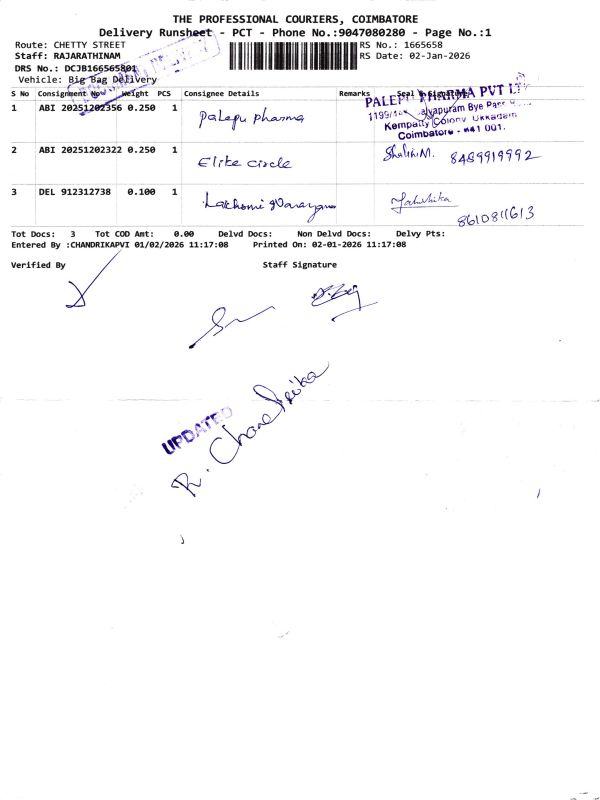 THE PROFESSIONAL COURIERS, COIMBATORE
Delivery Runsheet - PCT - Phone No.:9047080280 - Page No.:1
Route: CHETTY STREET RS No.: 1665658
Staff: RAJARATHINAM RS Date: 02-Jan-2026
DRS No.: DCJB166565801
Vehicle: Big Bag Delivery
S No Consignment No Weight PCS Consignee Details Remarks Seal & Signature
PALEPU PHARMA PVT LTD
1 ABI 20251202356 0.250 1 Palepu pharma
Bye Pass
Kempatty Colony Ukkadam
Coimbatore - 641 001.
2 ABI 20251202322 0.250 1 Elite circle Shalini.M. 8489919992
3 DEL 912312738 0.100 1 Lakshmi Narayana
8610811613
Tot Docs: 3 Tot COD Amt: 0.00 Delvd Docs: Non Delvd Docs: Delvy Pts:
Entered By :CHANDRIKAPVI 01/02/2026 11:17:08 Printed On: 02-01-2026 11:17:08
Verified By Staff Signature
UPDATED
R. Chandrika